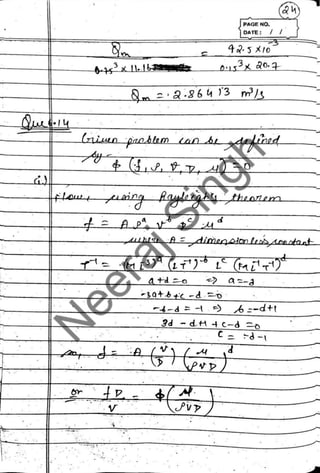 24
PAGE NO.
DATE: / /
Qm = 42.5 x10^-3
0.75^3 x 11.1 0.15^3 x 20.7
Qm = 2.86413 m³/s
Que 6.14
Given problem can be defined
by - φ (f, ρ, V, D, μ) = 0
(i)
Flow, using Rayleigh's theorem
f = A ρ^a V^b D^c μ^d
where A = dimensionless constant
T^-1 = (M L^-3)^a (L T^-1)^b L^c (M L^-1 T^-1)^d
a+d = 0 => a = -d
-3a+b+c-d = 0
-b-d = -1 => b = -d+1
3d -d+1 +c-d = 0
c = -d-1
so, f = A (V/D) (μ/ρVD)^d
or fD/V = φ (μ/ρVD)
Neeraj Singh